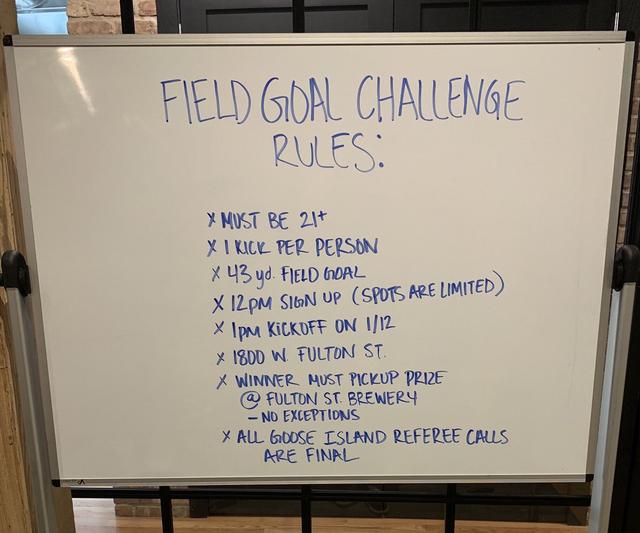 FIELD GOAL CHALLENGE
RULES:
x MUST BE 21+
x 1 KICK PER PERSON
x 43 yd. FIELD GOAL
x 12PM SIGN UP (SPOTS ARE LIMITED)
x 1PM KICKOFF ON 1/12
x 1800 W. FULTON ST.
x WINNER MUST PICKUP PRIZE
@ FULTON ST. BREWERY
- NO EXCEPTIONS
x ALL GOOSE ISLAND REFEREE CALLS
ARE FINAL